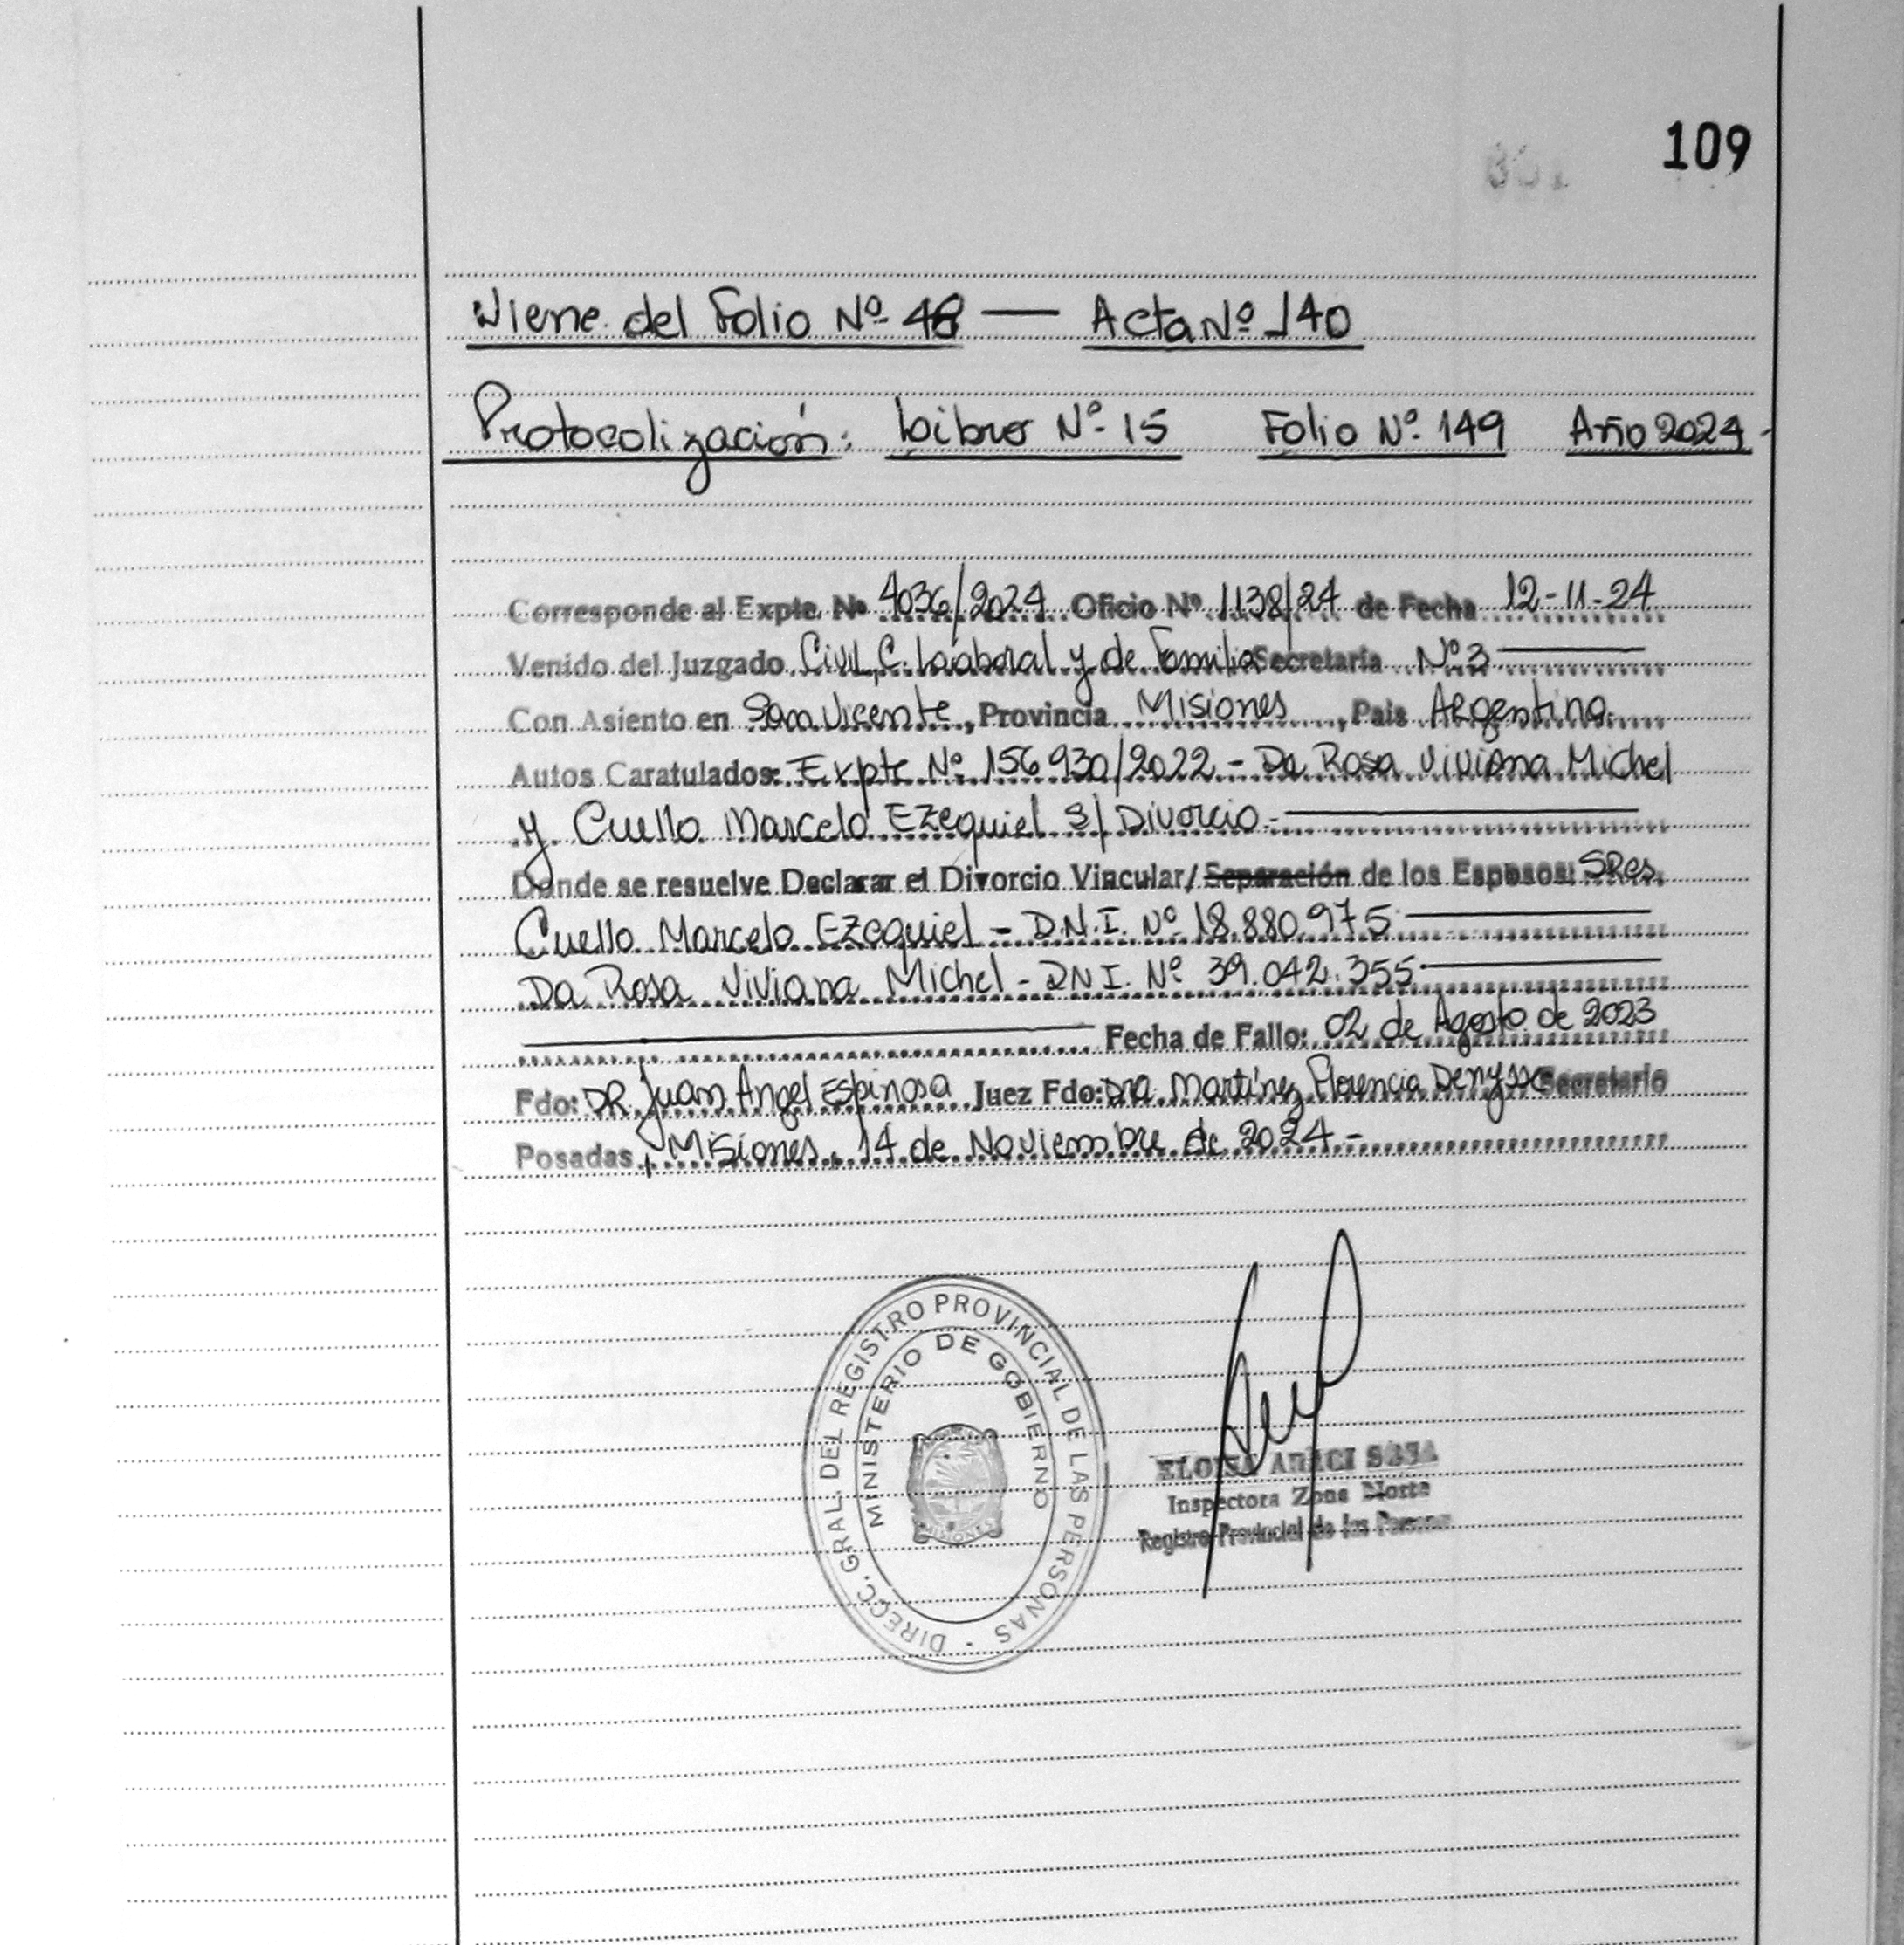 109
Viene del Folio Nº 48 — Acta Nº 140
Protocolización: Libro Nº 15 Folio Nº 149 Año 2024-
Corresponde al Expte. Nº 4036/2024 Oficio Nº 1138/24 de Fecha 12-11-24
Venido del Juzgado Civil, C. Laboral y de Familia Secretaría Nº 3
Con Asiento en San Vicente, Provincia Misiones, País Argentina.
Autos Caratulados: Expte Nº 156930/2022 - Da Rosa Viviana Michel
y Cuello Marcelo Ezequiel S/ Divorcio.-
Donde se resuelve Declarar el Divorcio Vincular/ Separación de los Esposos: SRes.
Cuello Marcelo Ezequiel - D.N.I. Nº 18.880.975
Da Rosa Viviana Michel - DNI. Nº 39.042.355
Fecha de Fallo: 02 de Agosto de 2023
Fdo: DR. Juan Angel Espinosa Juez Fdo: Dra. Martínez Florencia Denysse Secretario
Posadas, Misiones, 14 de Noviembre de 2024.-
DIRECC. GRAL. DEL REGISTRO PROVINCIAL DE LAS PERSONAS -
MINISTERIO DE GOBIERNO
MISIONES
ELOISA ARACI
Inspectora Zona Norte
Registro Provincial de las Personas